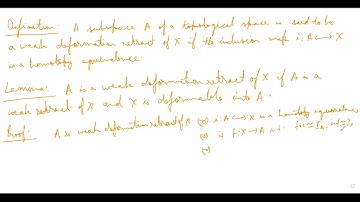 Definition: A subspace A of a topological space is said to be
a weak deformation retract of X if the inclusion map i: A ↪ X
is a homotopy equivalence.
Lemma: A is a weak deformation retract of X if A is a
weak retract of X and X is deformable into A.
Proof: A is weak deformation retract of X (⇔) i: A ↪ X is a homotopy equivalence
(⇔) is f: X → A s.t. f∘i ≃ I_A, i∘f ≃ I_X
(⇔)